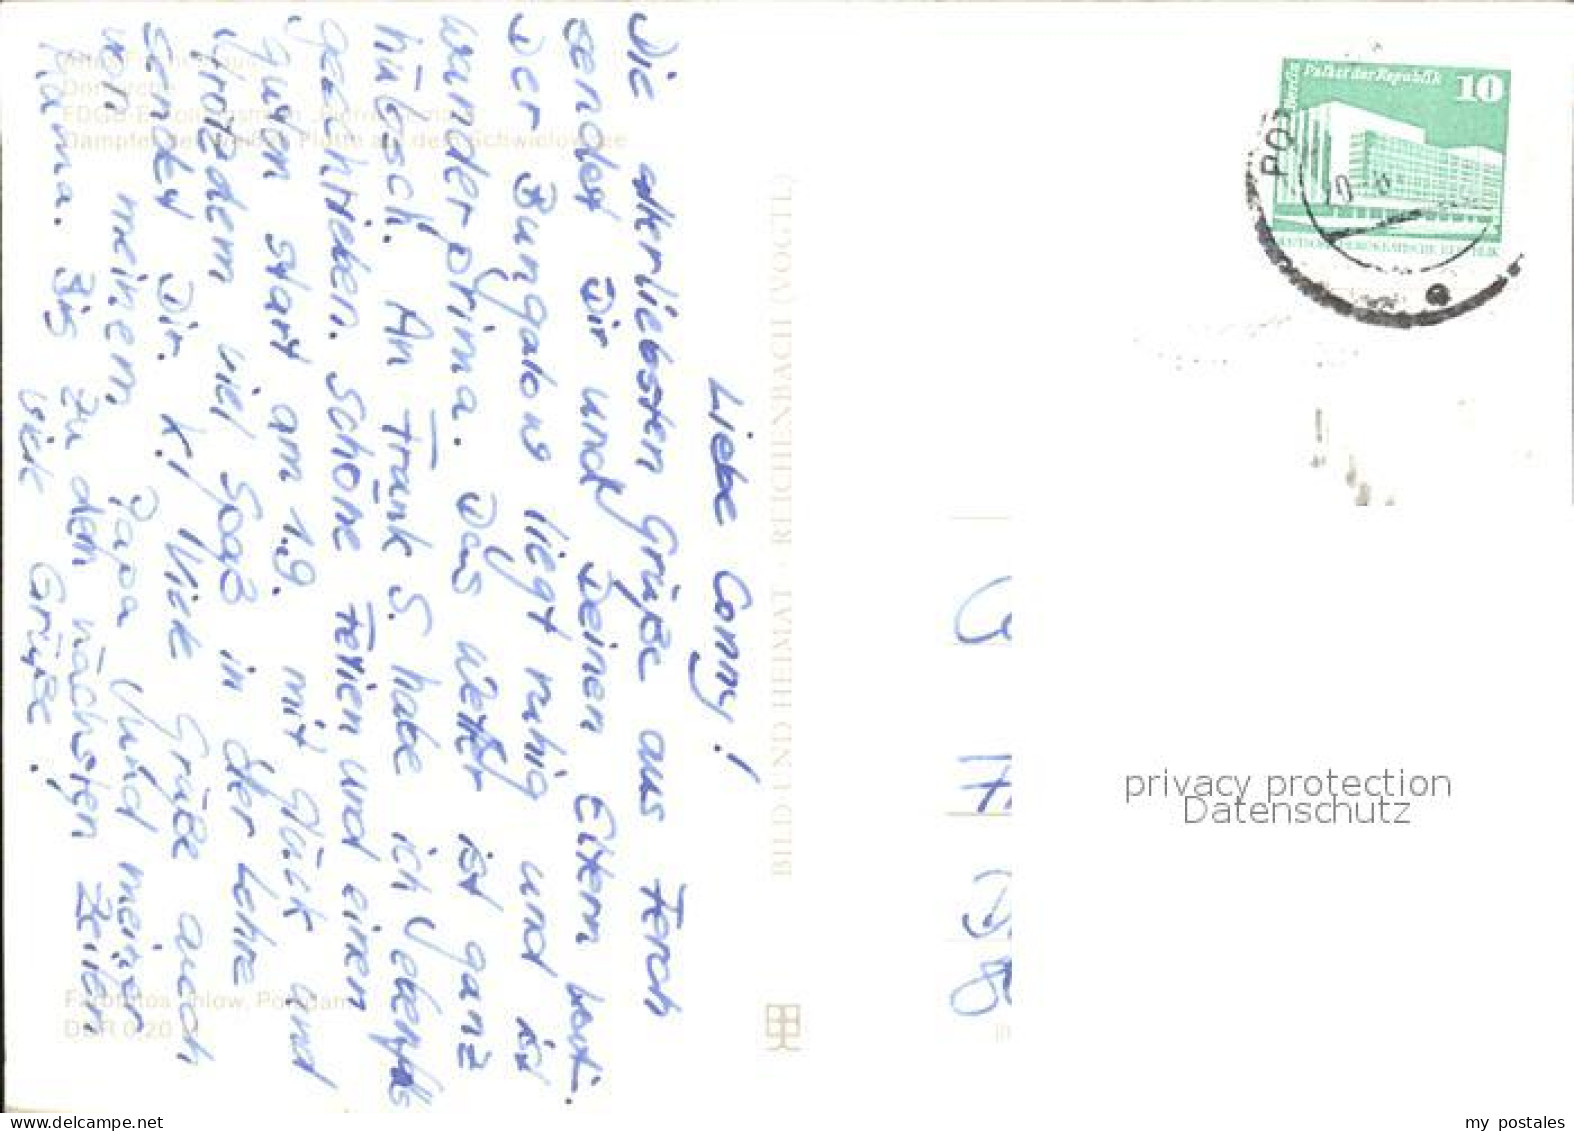 Liebe Conny!
Die allerliebsten Grüße aus Ferch
sendet Dir und Deinen Eltern
Der Bungalow liegt ruhig und ist
wunderprima. Das Wetter ist ganz
hübsch. An Frank S. habe ich ebenfalls
geschrieben. Schöne Ferien und einen
guten Start am 1.9. mit Glück und
trotzdem viel Spaß in der Lehre
sendet Dir. K.! Viele Grüße auch
von meinem Papa und meiner
Mama. Bis zu dem nächsten Zeilen
viele Grüße!
Dampfer der Weißen Flotte auf dem Schwielowsee
Farbfotos Ihlow, Potsdam
DDR 0,20 M
BILD UND HEIMAT · REICHENBACH (VOGTL)
Berlin Palast der Republik 10
DEUTSCHE DEMOKRATISCHE REPUBLIK
PO
privacy protection
Datenschutz
www.delcampe.net
my_postales